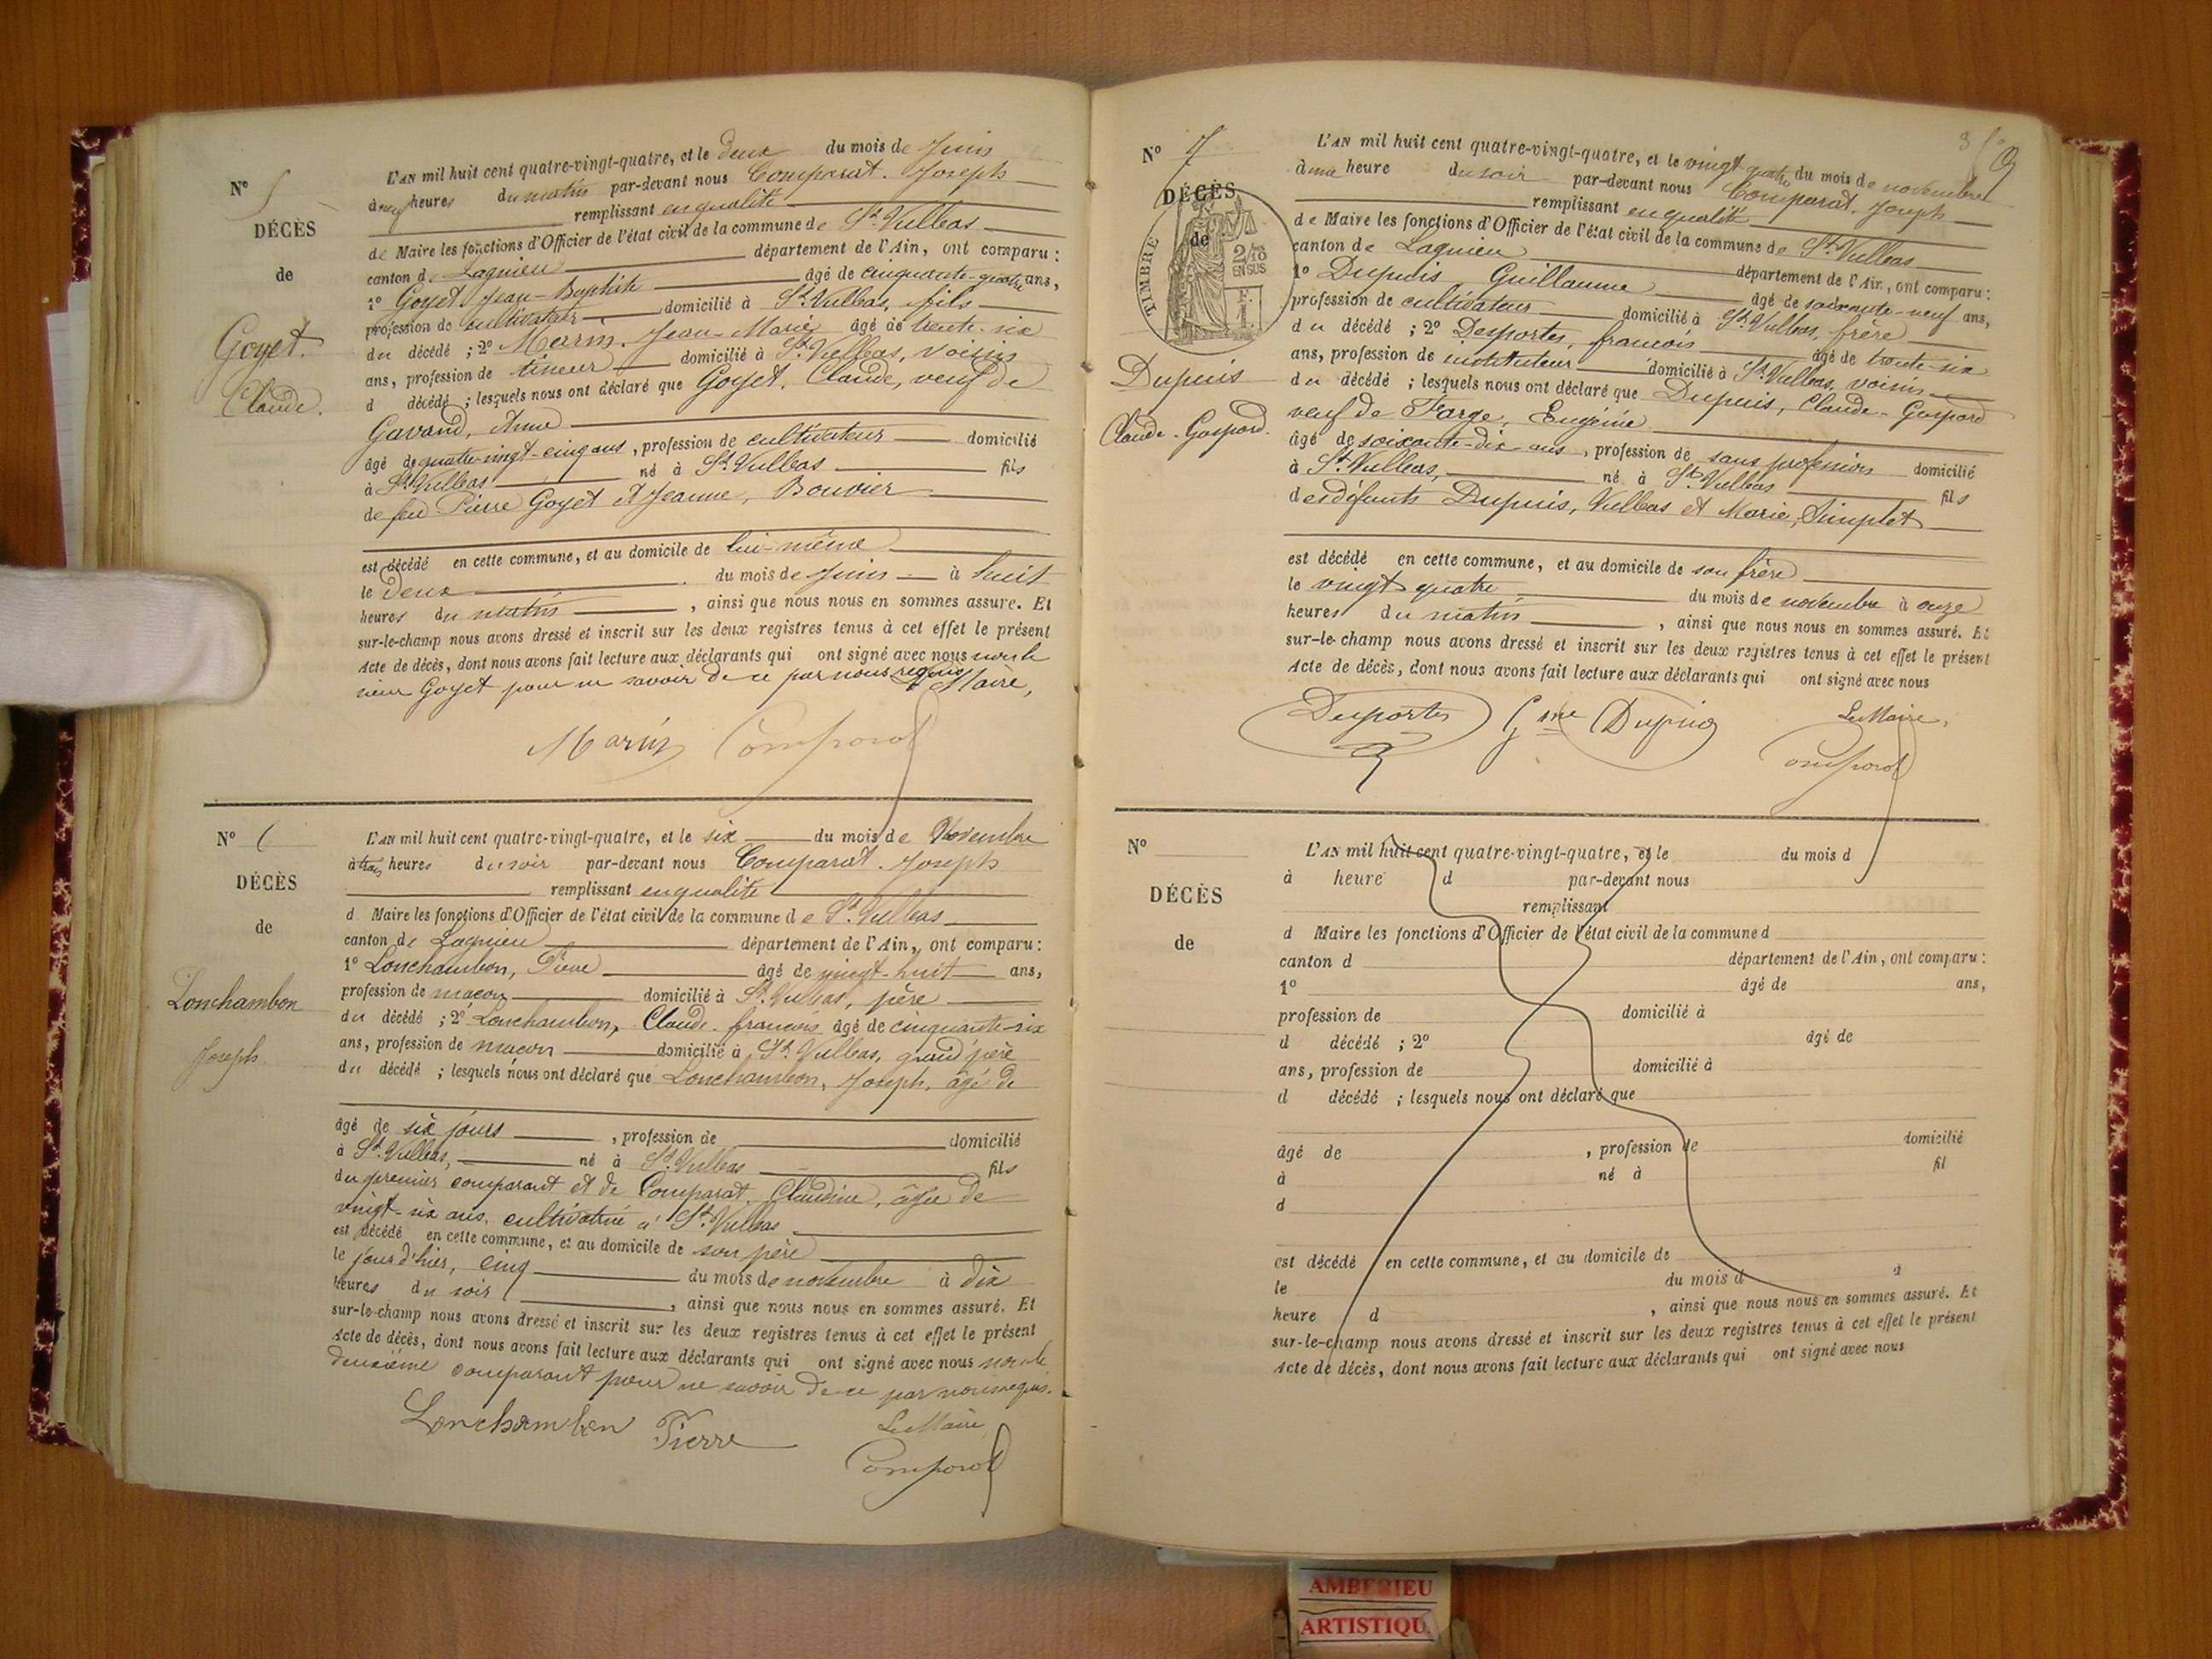 N° 5
DÉCÈS
de
Goyet.
Claude.
L'AN mil huit cent quatre-vingt-quatre, et le deux du mois de Juin
à neuf heures du matin par-devant nous Comparat. Joseph
remplissant en qualité
de Maire les fonctions d'Officier de l'état civil de la commune de St. Vulbas
canton de Lagnieu département de l'Ain, ont comparu :
1° Goyet Jean-Baptiste âgé de cinquante-quatre ans,
profession de cultivateur domicilié à St. Vulbas, fils
du décédé ; 2° Marin. Jean-Marie âgé de trente-six
ans, profession de domicilié à St. Vulbas, voisin
d décédé ; lesquels nous ont déclaré que Goyet, Claude, veuf de
Gavand, Anne
âgé de quatre-vingt-cinq ans, profession de cultivateur domicilié
à St. Vulbas né à St. Vulbas fils
de feu Pierre Goyet et Jeanne, Bouvier
est décédé en cette commune, et au domicile de lui-même
le deux du mois de Juin à huit
heures du matin , ainsi que nous nous en sommes assuré. Et
sur-le-champ nous avons dressé et inscrit sur les deux registres tenus à cet effet le présent
Acte de décès, dont nous avons fait lecture aux déclarants qui ont signé avec nous non le
sieur Goyet pour ne savoir de ce par nous requis Le Maire,
Marin Comparat
N° 6
DÉCÈS
de
Lonchambon
Joseph.
L'AN mil huit cent quatre-vingt-quatre, et le six du mois de Novembre
à trois heures du soir par-devant nous Comparat. Joseph
remplissant en qualité
d Maire les fonctions d'Officier de l'état civil de la commune de St. Vulbas
canton de Lagnieu département de l'Ain, ont comparu :
1° Lonchambon, Pierre âgé de vingt-huit ans,
profession de maçon domicilié à St. Vulbas, père
du décédé ; 2° Lonchambon, Claude-françois âgé de cinquante-six
ans, profession de maçon domicilié à St. Vulbas, grand'père
du décédé ; lesquels nous ont déclaré que Lonchambon, Joseph, âgé de
âgé de six jours , profession de domicilié
à St. Vulbas, né à St. Vulbas fils
du premier comparant et de Comparat, Claudine, âgée de
vingt-six ans, cultivatrice à St. Vulbas
est décédé en cette commune, et au domicile de son père
le jour d'hier, cinq du mois de novembre à dix
heures du soir , ainsi que nous nous en sommes assuré. Et
sur-le-champ nous avons dressé et inscrit sur les deux registres tenus à cet effet le présent
Acte de décès, dont nous avons fait lecture aux déclarants qui ont signé avec nous non le
deuxième comparant pour ne savoir de ce par nous requis.
Lonchambon Pierre Le Maire
Comparat
N° 7
DÉCÈS
de
TIMBRE
2/10
EN SUS
Dupuis
Claude-Gaspard.
L'AN mil huit cent quatre-vingt-quatre, et le vingt-quatre du mois de novembre
à une heure du soir par-devant nous Comparat. Joseph
remplissant en qualité
de Maire les fonctions d'Officier de l'état civil de la commune de St. Vulbas
canton de Lagnieu département de l'Ain, ont comparu :
1° Dupuis Guillaume âgé de soixante-neuf ans,
profession de cultivateur domicilié à St. Vulbas, frère
du décédé ; 2° Desportes, françois âgé de trente-six
ans, profession de instituteur domicilié à St. Vulbas, voisin
du décédé ; lesquels nous ont déclaré que Dupuis, Claude-Gaspard
veuf de Farge, Eugénie
âgé de soixante-dix ans, profession de sans profession domicilié
à St. Vulbas, né à St. Vulbas fils
des défunts Dupuis, Vulbas et Marie, Simplet
est décédé en cette commune, et au domicile de son frère
le vingt quatre du mois de novembre à onze
heures du matin , ainsi que nous nous en sommes assuré. Et
sur-le-champ nous avons dressé et inscrit sur les deux registres tenus à cet effet le présent
Acte de décès, dont nous avons fait lecture aux déclarants qui ont signé avec nous
Desportes Gme Dupuis Le Maire,
Comparat
N°
DÉCÈS
de
L'AN mil huit cent quatre-vingt-quatre, et le du mois d
à heure d par-devant nous
remplissant
d Maire les fonctions d'Officier de l'état civil de la commune d
canton d département de l'Ain, ont comparu :
1° âgé de ans,
profession de domicilié à
d décédé ; 2° âgé de
ans, profession de domicilié à
d décédé ; lesquels nous ont déclaré que
âgé de , profession de domicilié
à né à fil
d
est décédé en cette commune, et au domicile de
le du mois d à
heure d , ainsi que nous nous en sommes assuré. Et
sur-le-champ nous avons dressé et inscrit sur les deux registres tenus à cet effet le présent
Acte de décès, dont nous avons fait lecture aux déclarants qui ont signé avec nous
AMBERIEU
ARTISTIQU